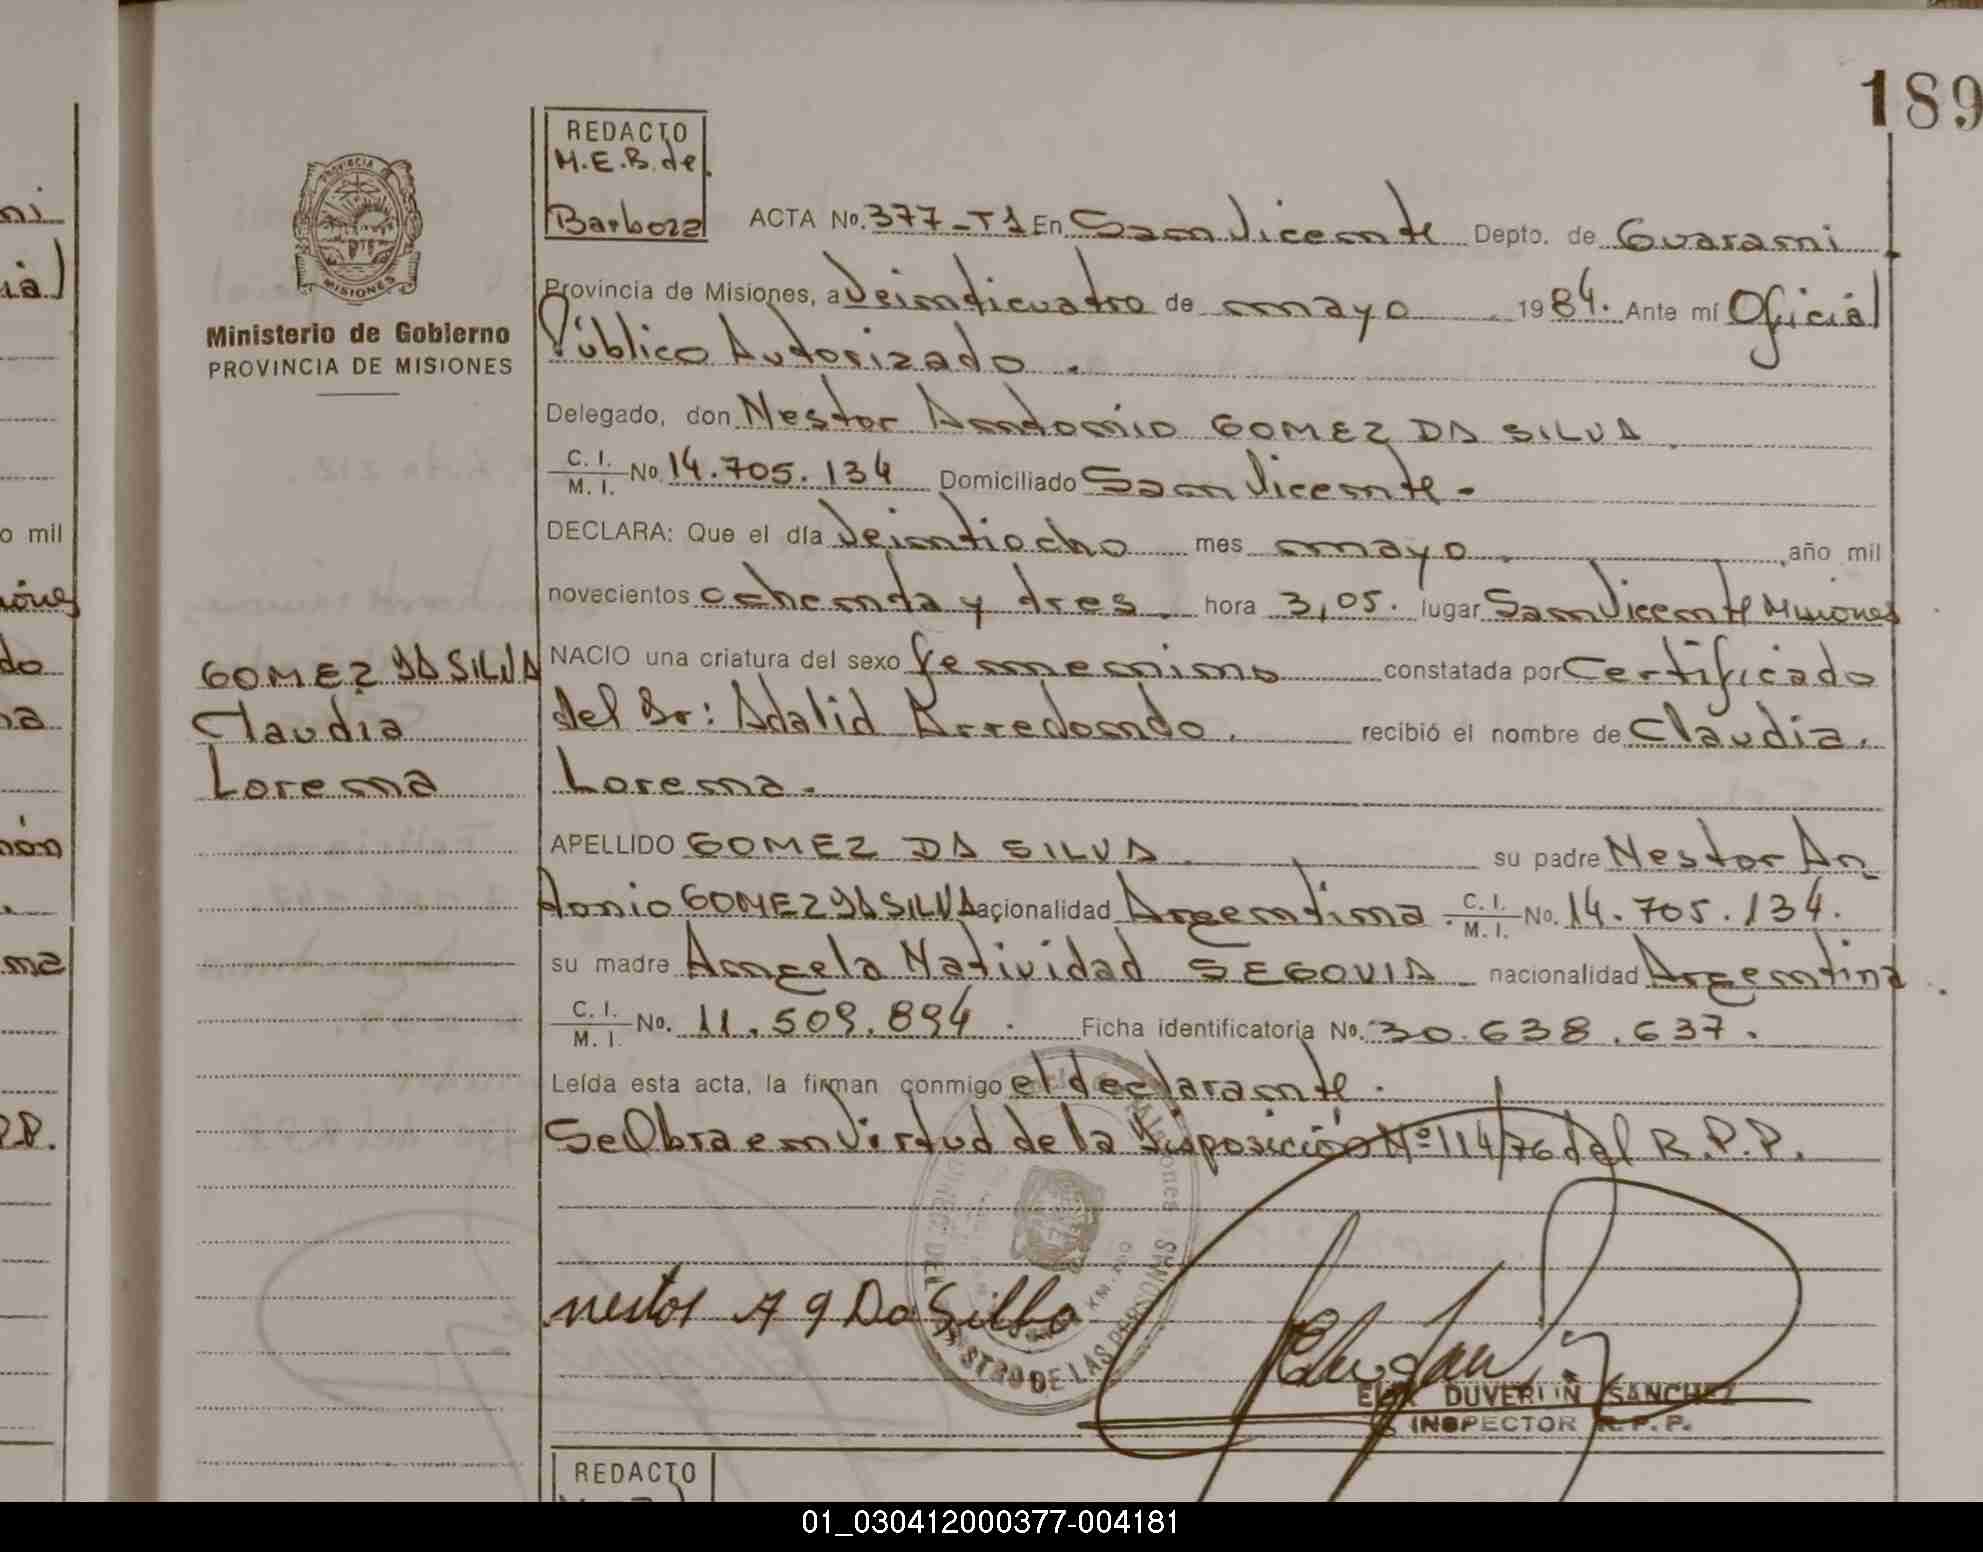 189
REDACTO
M.E.B. de
Barboza
PROVINCIA DE
MISIONES
Ministerio de Gobierno
PROVINCIA DE MISIONES
ACTA No. 377-T1 En San Vicente Depto. de Guarani
Provincia de Misiones, a Veinticuatro de mayo 1984. Ante mí Oficial
Público Autorizado.
Delegado, don Nestor Antonio GOMEZ DA SILVA
C. I. / M. I. No. 14.705.134 Domiciliado San Vicente-
DECLARA: Que el día Veintiocho mes mayo, año mil
novecientos ochenta y tres. hora 3,05. lugar San Vicente Misiones
NACIO una criatura del sexo femenino constatada por Certificado
del Dr: Adalid Arredondo. recibió el nombre de Claudia.
Lorena.
GOMEZ DA SILVA
Claudia
Lorena
APELLIDO GOMEZ DA SILVA su padre Nestor An
tonio GOMEZ DA SILVA nacionalidad Argentina. C. I. / M. I. No. 14.705.134.
su madre Angela Natividad SEGOVIA nacionalidad Argentina.
C. I. / M. I. No. 11.509.894. Ficha identificatoria No. 30.638.637.
Leída esta acta, la firman conmigo el declarante.
Se Obra en Virtud de la Disposición Nº 114/76 del R.P.P.
nestor A g Da Silba
REGISTRO DE LAS PERSONAS
DUVERLIN SANCHEZ
INSPECTOR R.P.P.
REDACTO
ni
ia)
o mil
iones
do
na
ión
ma
P.P.
01_030412000377-004181